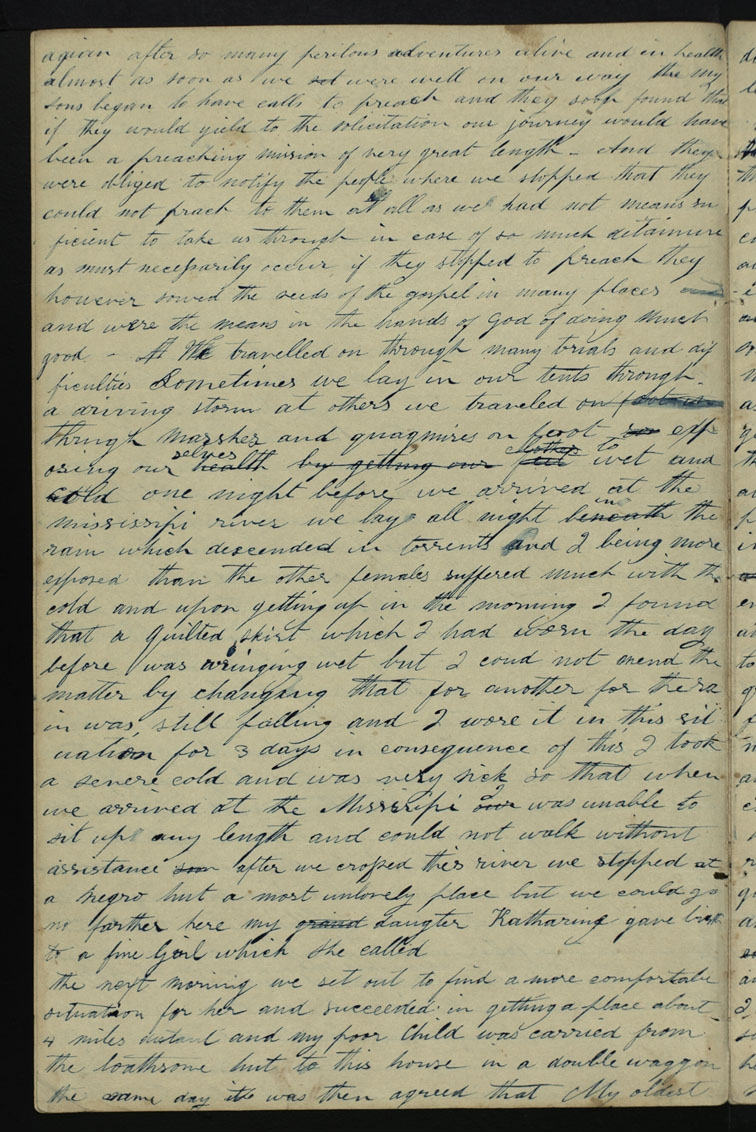 agian after so many perilous adventures alive and in health
almost as soon as we were well on our way the my
sons began to have calls to preach and they soon found that
if they would yield to the solicitation our journey would have
been a preaching mision of very great length - And they
were obliged to notify the people where we stopped that they
could not prach to them at all as we had not means su
ficient to take us through in case of so much detainure
as must necessarily occur if they stopped to preach they
however sowed the seeds of the gospel in many places
and were the means in the hands of God of doing much
good - We travelled on through many trials and dif
ficulties Sometimes we lay in our tents through
a driving storm at others we traveled on
through marshes and quagmires on foot exp
osing our selves to wet and
cold one night before we arrived at the
mississipi river we lay all night in the
rain which descended in torrents and I being more
exposed than the other females suffered much with the
cold and upon getting up in the morning I found
that a quilted skirt which I had worn the day
before was wringing wet but I coud not mend the
matter by changing that for another for the ra
in was still falling and I wore it in this sit
uation for 3 days in consequence of this I took
a severe cold and was very sick so that when
we arrived at the Missisipi I was unable to
sit up any length and could not walk without
assistance after we crossed this river we stopped at
a Negro hut a most unlovely place but we could go
no farther here my daugter Katharine gave birth
to a fine Girl which she called
the next morning we set out to find a more comfortabe
situation for her and succeeded in getting a place about
4 miles distant and my poor Child was carried from
the loathsome hut to this house in a double waggon
the same day it was then agreed that My oldest